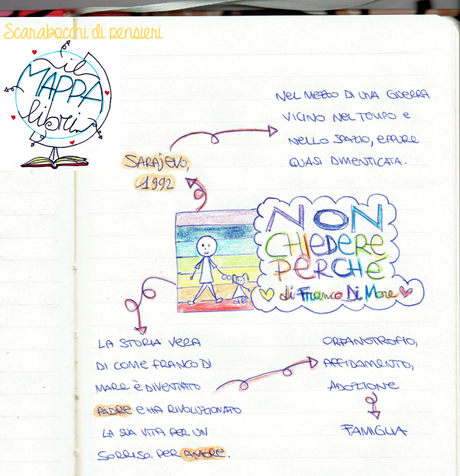 Scarabocchi di pensieri
il
MAPPA
libri
NEL MEZZO DI UNA GUERRA
VICINO NEL TEMPO E
NELLO SPAZIO, EPPURE
QUASI DIMENTICATA.
SARAJEVO,
1992
NON
CHIEDERE
PERCHÉ
di FRANCO DI MARE
LA STORIA VERA
DI COME FRANCO DI
MARE È DIVENTATO
PADRE E HA RIVOLUZIONATO
LA SUA VITA PER UN
SORRISO. PER AMORE.
ORFANOTROFIO,
AFFIDAMENTO,
ADOZIONE
FAMIGLIA